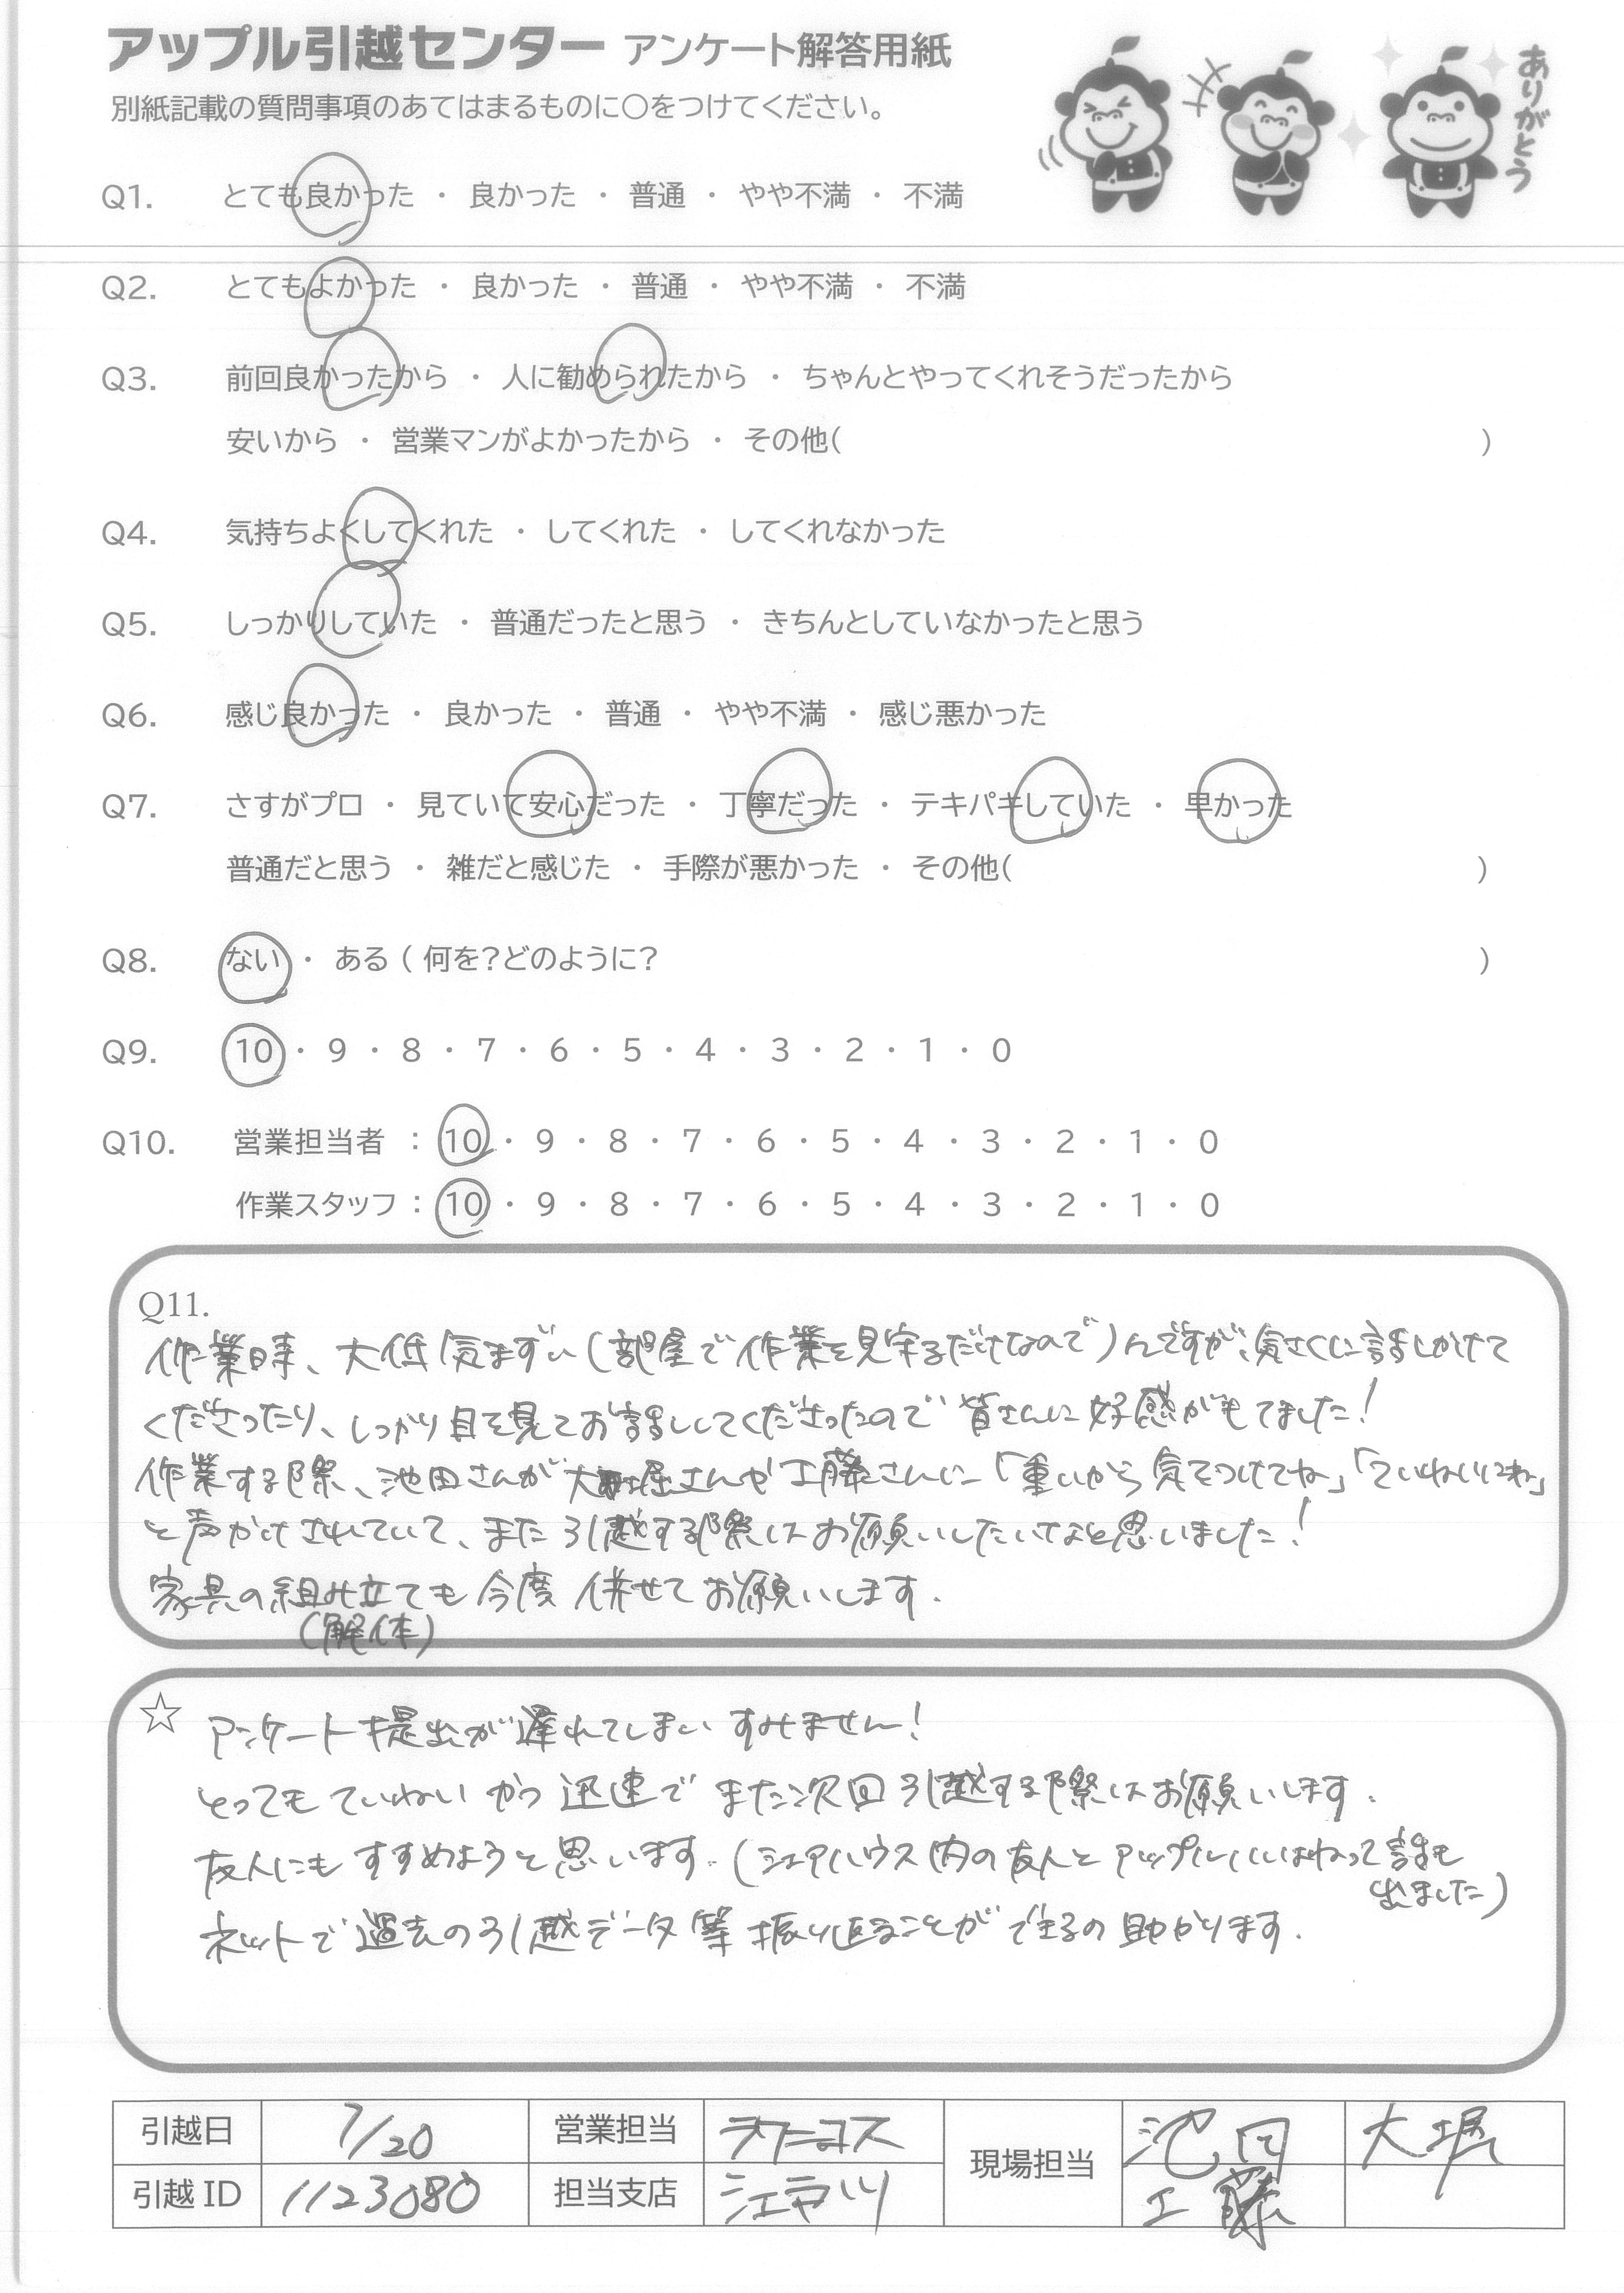 アップル引越センター アンケート解答用紙
別紙記載の質問事項のあてはまるものに〇をつけてください。
ありがとう
Q1. とても良かった ・ 良かった ・ 普通 ・ やや不満 ・ 不満
Q2. とてもよかった ・ 良かった ・ 普通 ・ やや不満 ・ 不満
Q3. 前回良かったから ・ 人に勧められたから ・ ちゃんとやってくれそうだったから
安いから ・ 営業マンがよかったから ・ その他( )
Q4. 気持ちよくしてくれた ・ してくれた ・ してくれなかった
Q5. しっかりしていた ・ 普通だったと思う ・ きちんとしていなかったと思う
Q6. 感じ良かった ・ 良かった ・ 普通 ・ やや不満 ・ 感じ悪かった
Q7. さすがプロ ・ 見ていて安心だった ・ 丁寧だった ・ テキパキしていた ・ 早かった
普通だと思う ・ 雑だと感じた ・ 手際が悪かった ・ その他( )
Q8. ない ・ ある ( 何を?どのように? )
Q9. 10 ・ 9 ・ 8 ・ 7 ・ 6 ・ 5 ・ 4 ・ 3 ・ 2 ・ 1 ・ 0
Q10. 営業担当者 : 10 ・ 9 ・ 8 ・ 7 ・ 6 ・ 5 ・ 4 ・ 3 ・ 2 ・ 1 ・ 0
作業スタッフ : 10 ・ 9 ・ 8 ・ 7 ・ 6 ・ 5 ・ 4 ・ 3 ・ 2 ・ 1 ・ 0
Q11.
作業時、大低気まずい(部屋で作業を見守るだけなので)んですが、気さくに話しかけて
くださったり、しっかり目を見てお話ししてくださったので皆さんに好感がもてました!
作業する際、池田さんが大堀さんや工藤さんに「重いから気をつけてね」「ていねいにね」
と声かけされていて、また引越する際はお願いしたいなと思いました!
家具の組み立ても今度併せてお願いします.
(解体)
☆ アンケート提出が遅れてしまいすみません!
とってもていねいかつ迅速でまた次回引越する際はお願いします.
友人にもすすめようと思います.(シェアハウス内の友人とアップルいいよねって話も
出ました)
ネットで過去の引越データ等振り返ることができるの助かります.
引越日 7/20 営業担当 現場担当 池田 大堀
引越ID 1123080 担当支店 江戸川 工藤